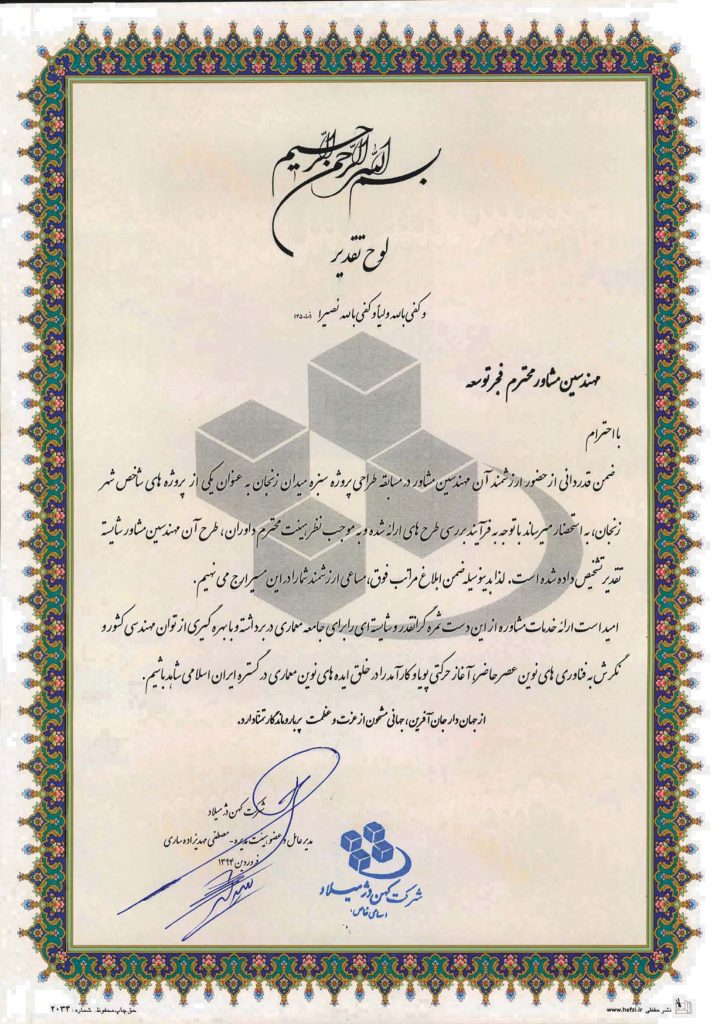 بسم الله الرحمن الرحیم
لوح تقدیر
و کفی بالله ولیا و کفی بالله نصیرا (نساء ۴۵)
مهندسین مشاور محترم فجر توسعه
با احترام
ضمن قدردانی از حضور ارزشمند آن مهندسین مشاور در مسابقه طراحی پروژه سبزه میدان زنجان به عنوان یکی از پروژه های شاخص شهر
زنجان، به استحضار میرساند با توجه به فرآیند بررسی طرح های ارائه شده و به موجب نظر هیئت محترم داوران، طرح آن مهندسین مشاور شایسته
تقدیر تشخیص داده شده است. لذا بدینوسیله ضمن ابلاغ مراتب فوق، مساعی ارزشمند شما را در این مسیر ارج می نهیم.
امید است ارائه خدمات مشاوره از این دست ثمره گرانقدر و شایسته ای را برای جامعه معماری در برداشته و با بهره گیری از توان مهندسی کشور و
نگرش به فناوری های نوین عصر حاضر، آغاز حرکتی پویا و کارآمد را در خلق ایده های نوین معماری در گستره ایران اسلامی شاهد باشیم.
از جهان دار جان آفرین، جهانی مشحون از عزت و عظمت پربار و ماندگار تمنا دارد.
شرکت کهن دژ میلاد
مدیر عامل و عضو هیئت مدیره - مصطفی مهدیزاده ساری
فروردین ۱۳۹۴
شرکت کهن دژ میلاد
(سهامی خاص)
حق چاپ محفوظ. شماره: ۲۰۳۴
نشر حفظی www.hefzi.ir